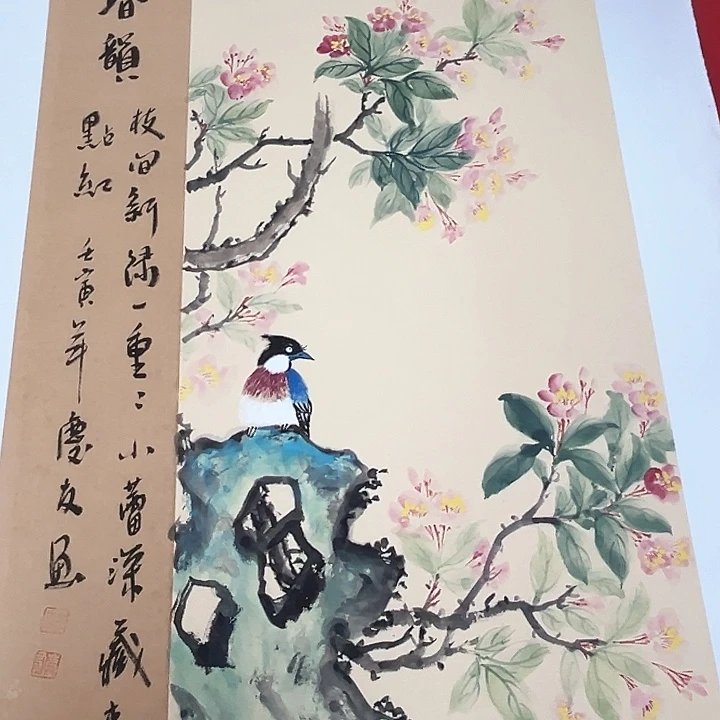 春韻
枝間新緑一重〻小蕾深藏
點紅
壬寅年慶友画